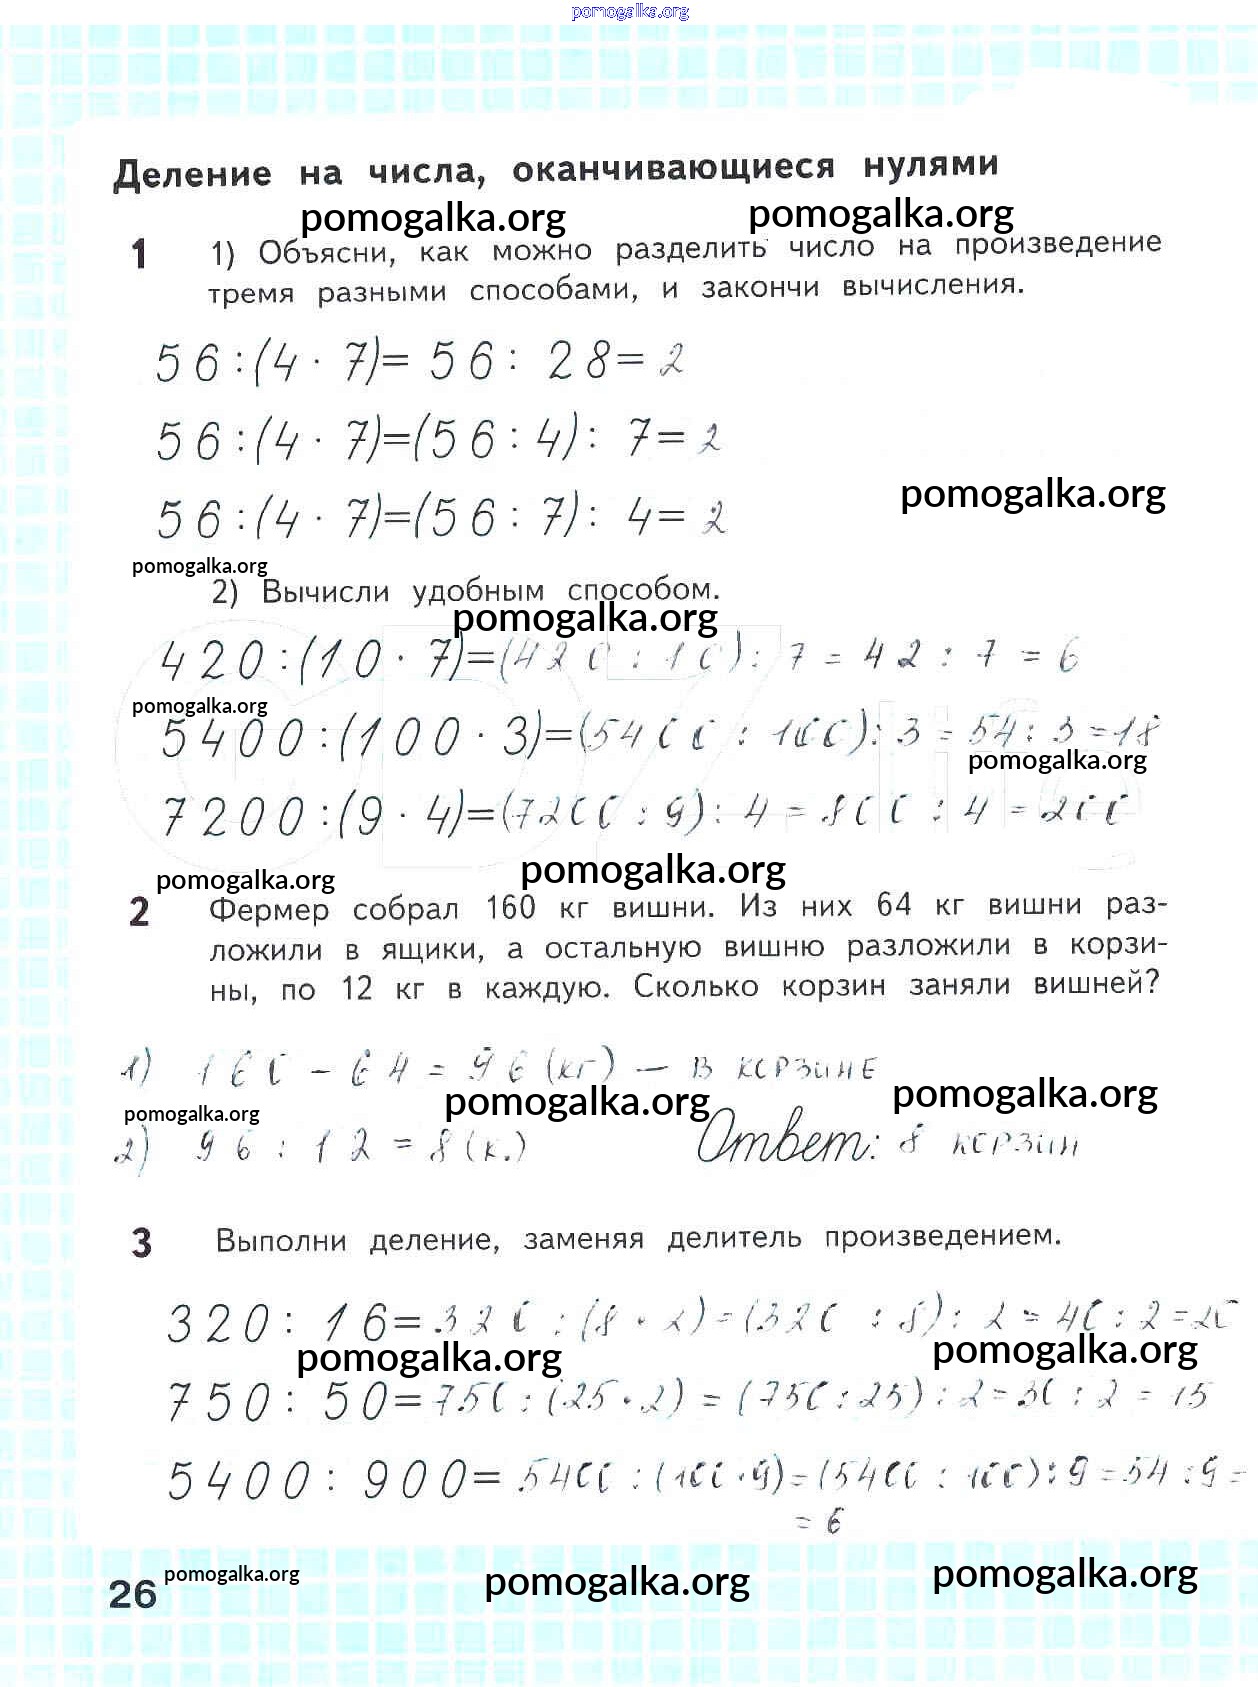 pomogalka.org
Деление на числа, оканчивающиеся нулями
pomogalka.org pomogalka.org
1 1) Объясни, как можно разделить число на произведение
тремя разными способами, и закончи вычисления.
56:(4·7)=56:28=2
56:(4·7)=(56:4):7=2
pomogalka.org
56:(4·7)=(56:7):4=2
pomogalka.org
2) Вычисли удобным способом.
pomogalka.org
420:(10·7)=(420:10):7=42:7=6
pomogalka.org
5400:(100·3)=(5400:100):3=54:3=18
pomogalka.org
7200:(9·4)=(7200:9):4=800:4=200
pomogalka.org pomogalka.org
2 Фермер собрал 160 кг вишни. Из них 64 кг вишни раз-
ложили в ящики, а остальную вишню разложили в корзи-
ны, по 12 кг в каждую. Сколько корзин заняли вишней?
1) 160-64=96(кг) — в корзине
pomogalka.org pomogalka.org pomogalka.org
2) 96:12=8(к.) Ответ: 8 корзин
3 Выполни деление, заменяя делитель произведением.
320:16=320:(8·2)=(320:8):2=40:2=20
pomogalka.org pomogalka.org
750:50=750:(25·2)=(750:25):2=30:2=15
5400:900=5400:(100·9)=(5400:100):9=54:9=
=6
26 pomogalka.org pomogalka.org pomogalka.org